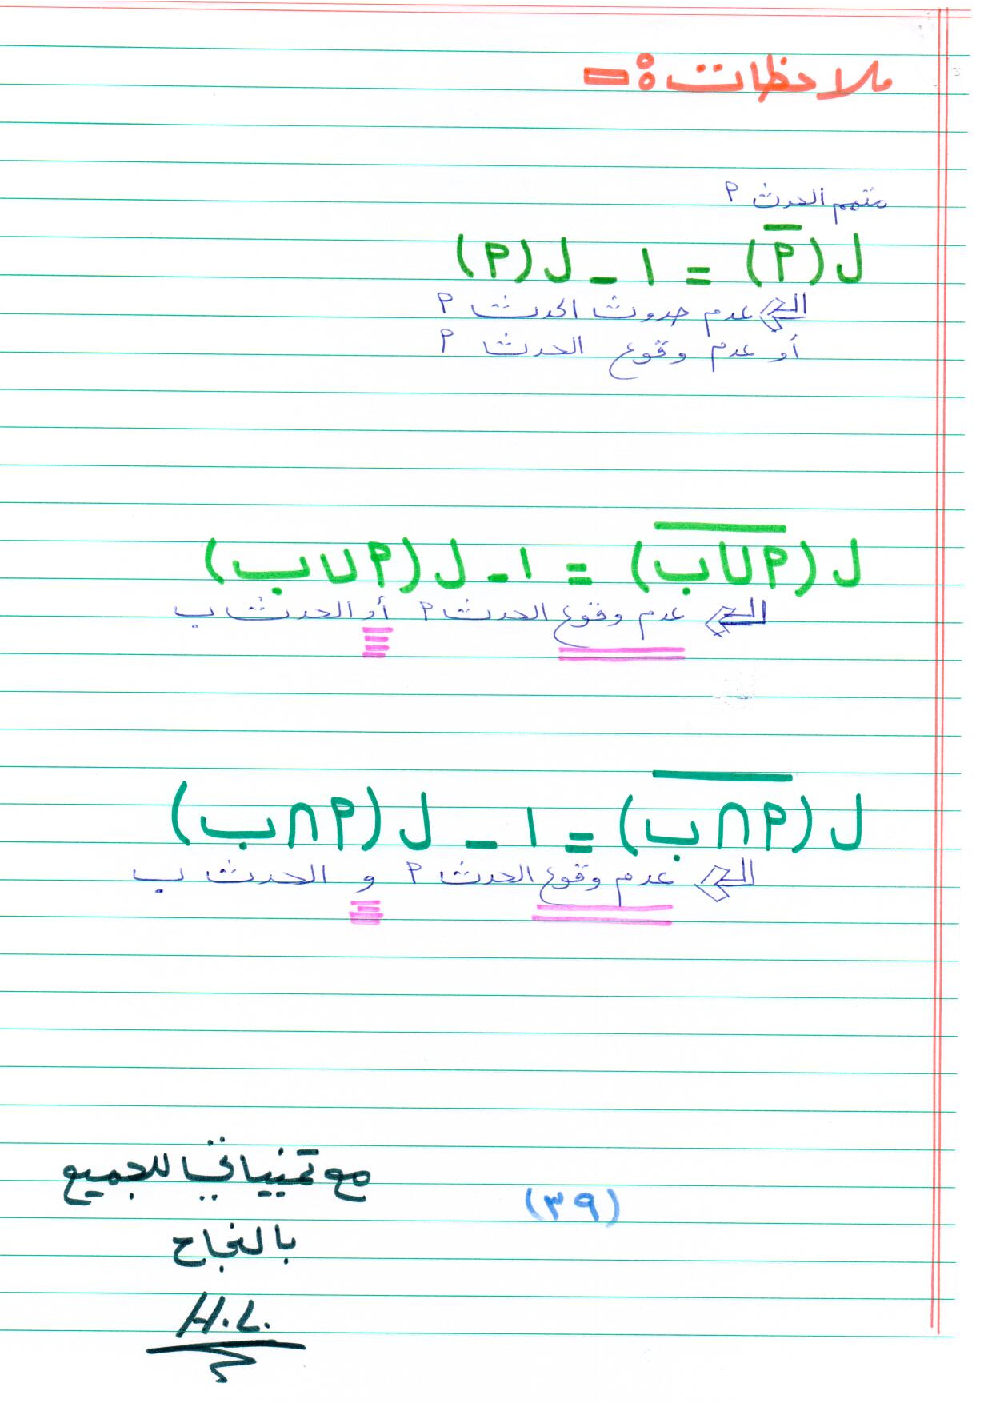 ملاحظات :-
متمم الحدث P
ل(P̅) = ١ - ل(P)
عدم حدوث الحدث P
أو عدم وقوع الحدث P
ل(P̅ ̅∪̅ ̅ب̅) = ١ - ل(P ∪ ب)
عدم وقوع الحدث P أو الحدث ب
ل(P̅ ̅∩̅ ̅ب̅) = ١ - ل(P ∩ ب)
عدم وقوع الحدث P و الحدث ب
(٣٩)
مع تمنياتي للجميع
بالنجاح
H.L.